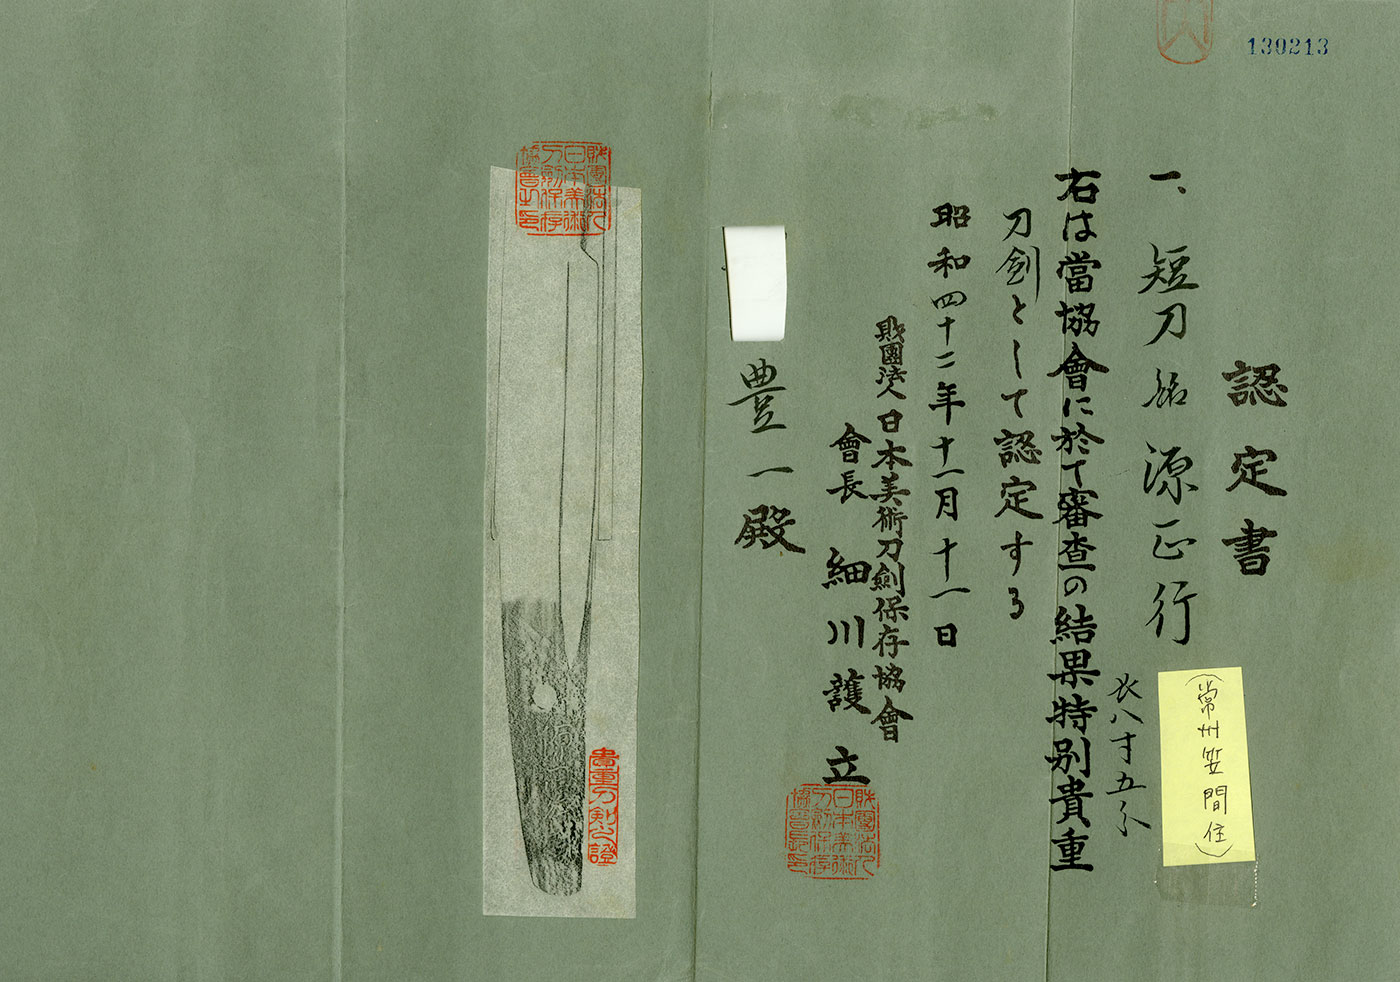 139213
認定書
一、短刀 銘 源正行
長八寸五分
(常州笠間住)
右は當協會に於て審査の結果特別貴重
刀剣として認定する
昭和四十二年十一月十一日
財團法人日本美術刀劍保存協會
會長 細川護立
財團法人日本美術刀劍保存協會長印
豊一殿
財團法人日本美術刀劍保存協會之印
貴重刀剣之證